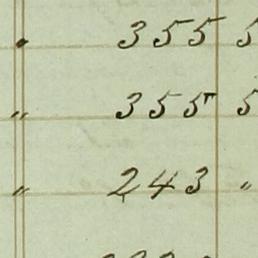 . 355 5
" 355 5
" 243 "